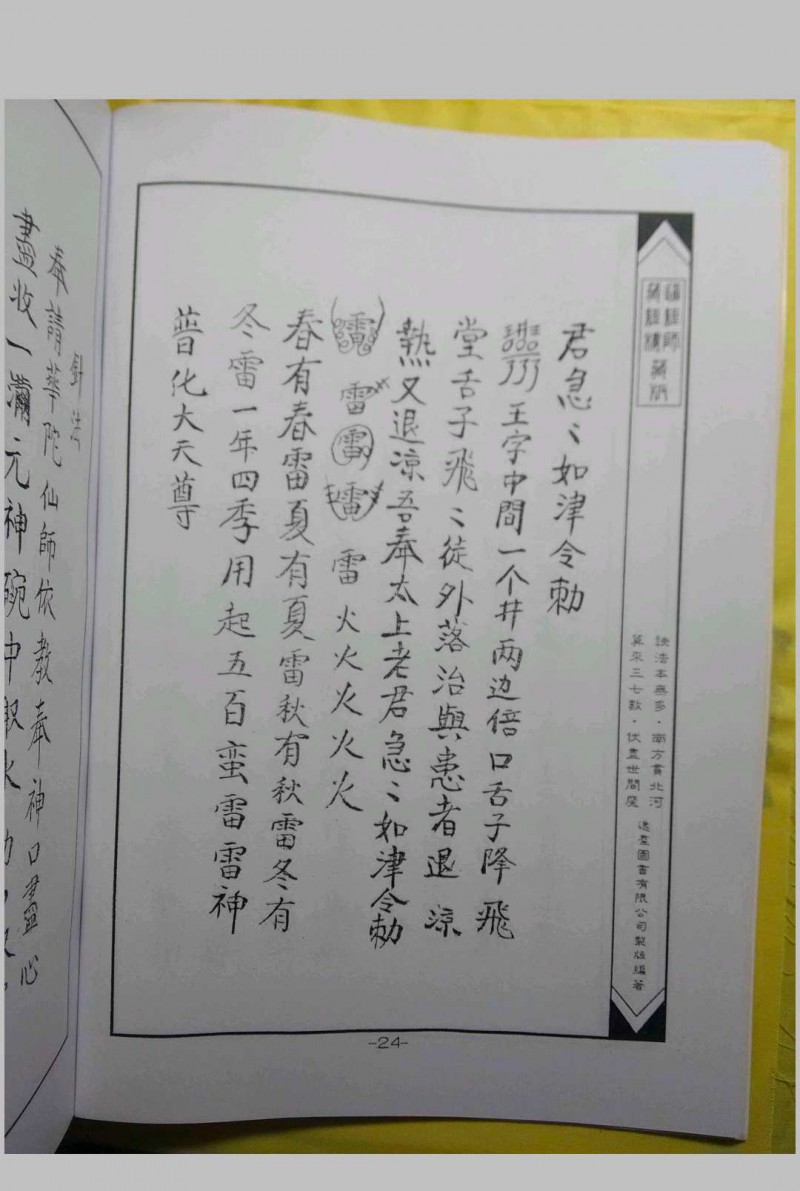 君急〻如津令勅
王字中間一个井两边倍口舌子降飛
堂舌子飛〻徒外落治與患者退涼
熱又退涼吾奉太上老君急〻如津令勅
雷 雷 火火火火火
春有春雷夏有夏雷秋有秋雷冬有
冬雷一年四季用起五百蛮雷雷神
普化大天尊
-24-
訣法本無多·南方貫北河
算來三七數·伏盡世間魔
圖書有限公司製版編著
針法
奉請華陀仙師依教奉神口
盡收一滿元神碗中